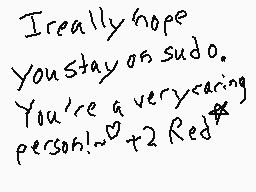 I really hope
you stay on sudo.
You're a very caring
person!~♡ +2 Red☆